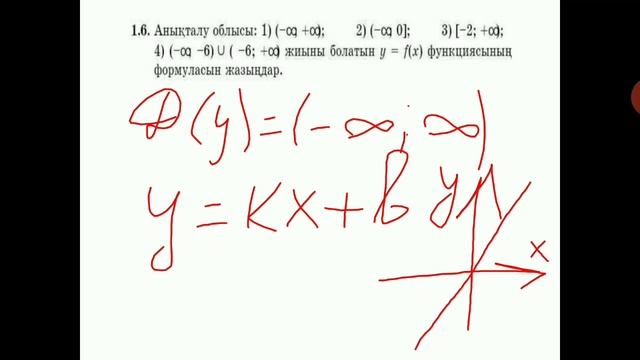 1.6. Анықталу облысы: 1) (-∞; +∞); 2) (-∞; 0]; 3) [-2; +∞);
4) (-∞; -6) ∪ ( -6; +∞) жиыны болатын y = f(x) функциясының
формуласын жазыңдар.
D(y)=(-∞;∞)
y=kx+b
y
x